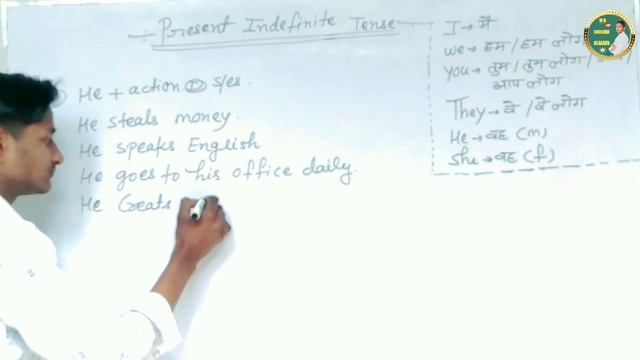 Present Indefinite Tense
He + action ① s/es.
He steals money.
He speaks English
He goes to his office daily.
He Greats
I → मैं
we → हम / हम लोग
you → तुम / तुम लोग /
आप लोग
They → वे / वे लोग
He → वह (m)
She → वह (f)
ENGLISH